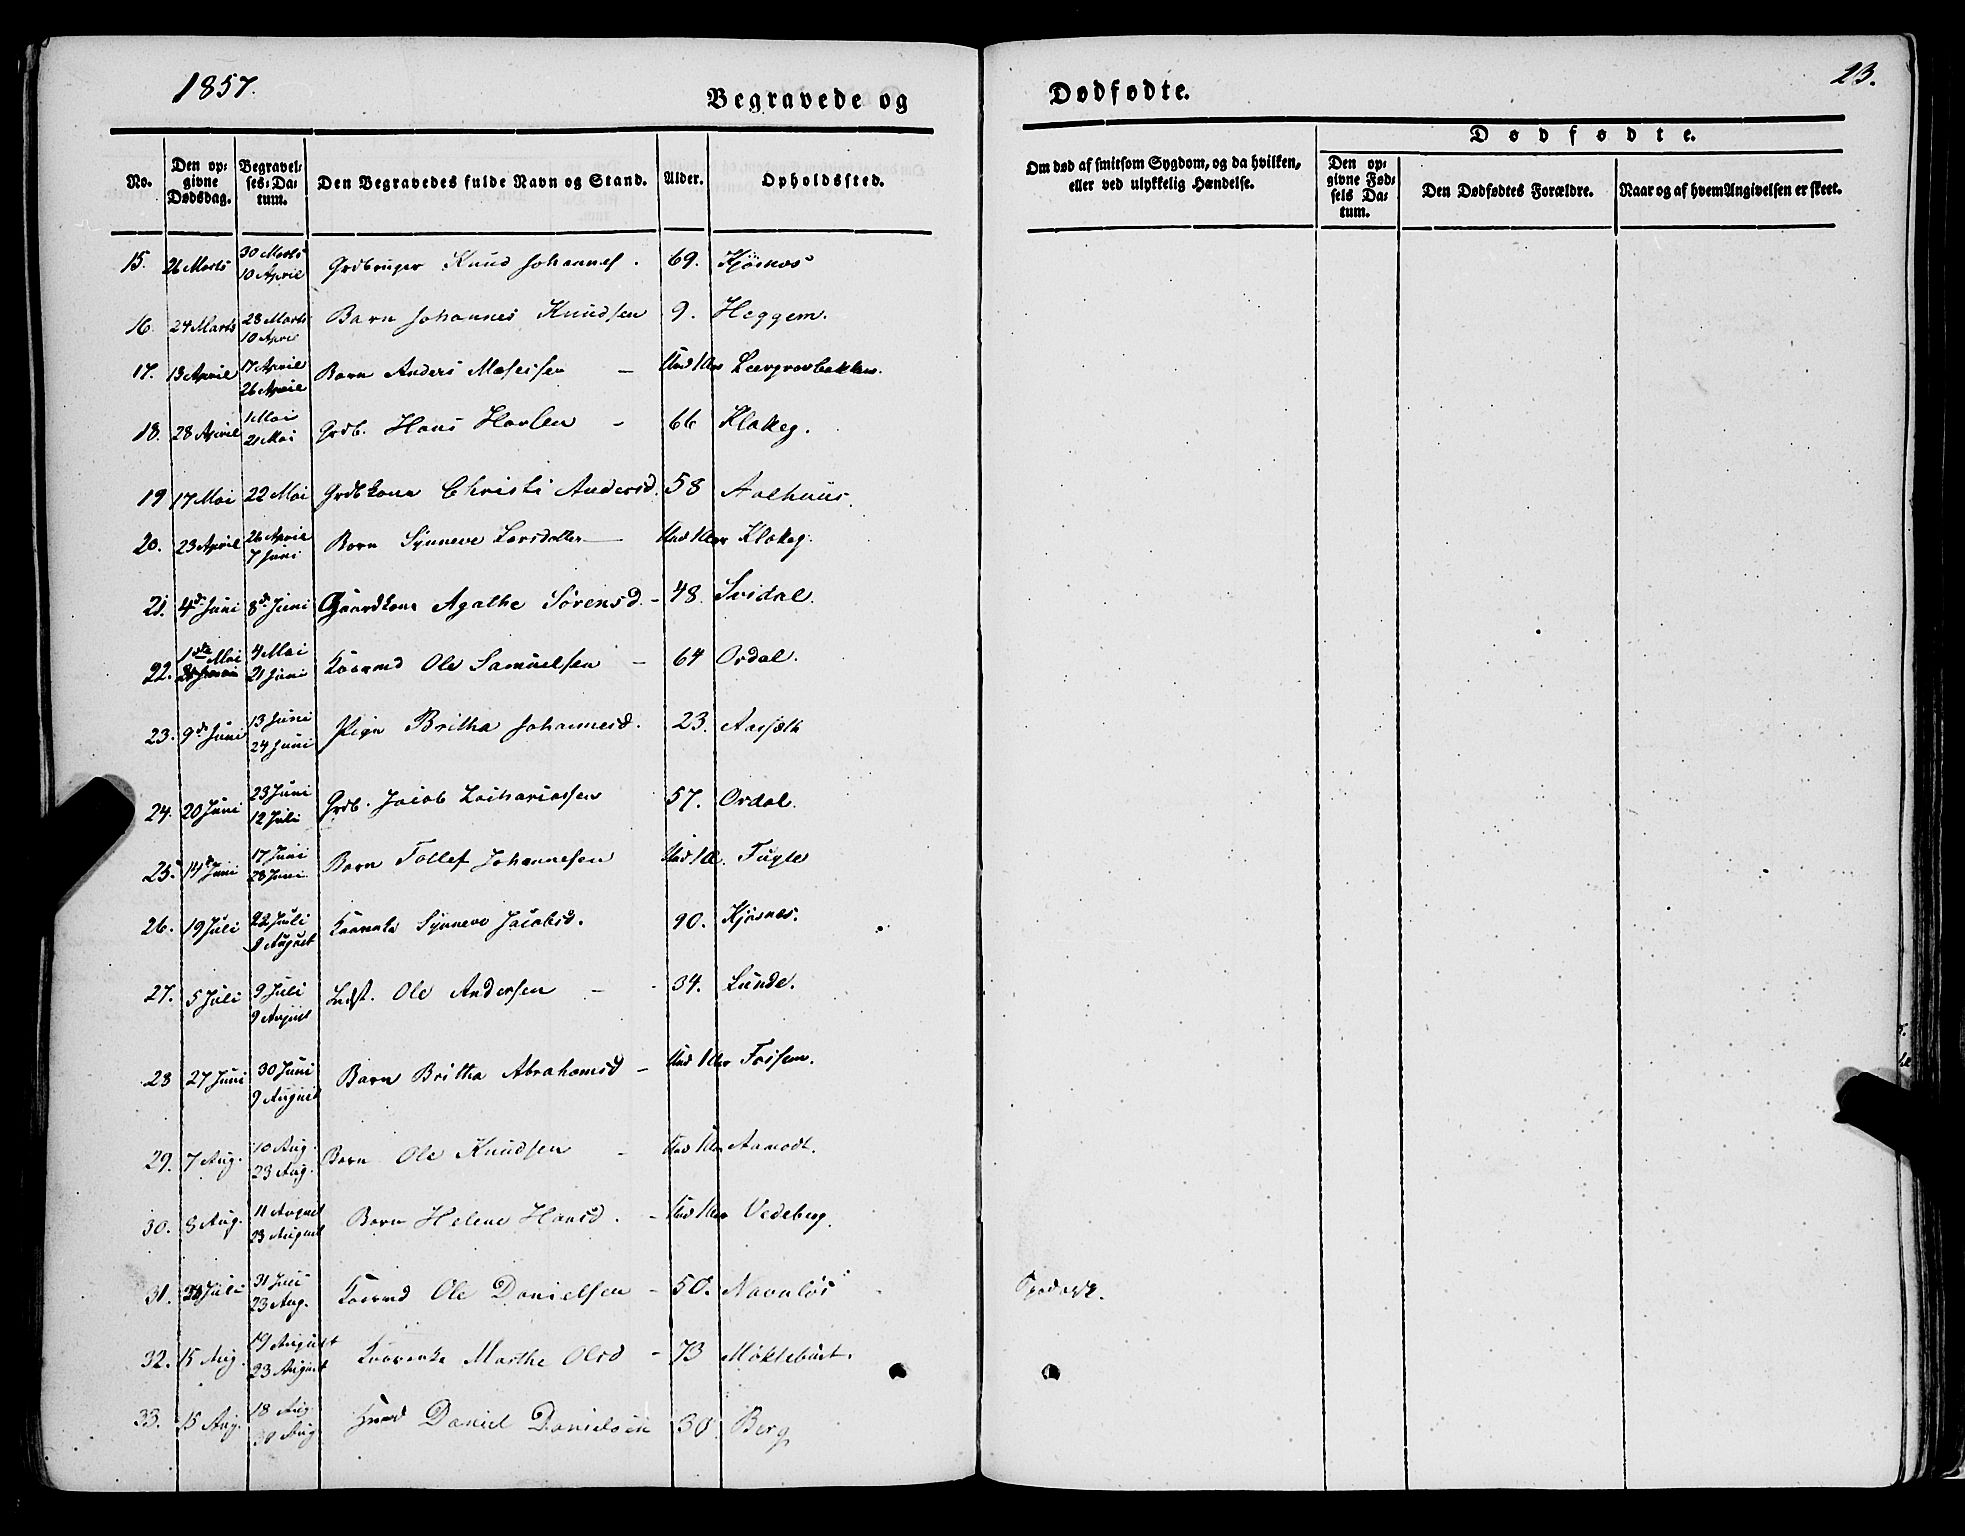 1857.
Begravede og
Dødfødte.
23.
No.
Den op-
givne
Dødsdag.
Begravel-
ses-Da-
tum.
Den Begravedes fulde Navn og Stand.
Alder.
Opholdssted.
Om død af smitsom Sygdom, og da hvilken,
eller ved ulykkelig Hændelse.
Dødfødte.
Den op-
givne Fød-
sels Da-
tum.
Den Dødfødtes Forældre.
Naar og af hvem Angivelsen er skeet.
15. 26 Marts 30 Marts 10 April Grdbruger Knud Johannes. 69. Kjøsnes
16. 24 Marts 28 Marts 10 April Barn Johannes Knudsen 9. Heggem.
17. 13 April 17 April 26 April Barn Anders Mosessen – Und 1 Aar
18. 28 April 1 Mai 21 Mai Grdb. Hans – 66 Klakeg.
19 17 Mai 22 Mai Grdbkone Christi Andersd. 58 Aalhuus.
20. 23 April 26 April 7 Juni Barn Synneve Larsdatter Und 1 Aar Klakeg.
21. 4de Juni 8de Juni Gaardkone Agathe Sørensd. – 48. Svidal.
22. 1ste Mai 4 Mai 21 Juni Kaarmd Ole Samuelsen – 64 Ordal.
23. 9de Juni 13 Juni 24 Juni Pige Britha Johannesd. 23. Aasæth
24. 20 Juni 23 Juni 12 Juli Grdb. Jacob Zachariassen 57. Ordal.
25. 14de Juni 17 Juni 28 Juni Barn Tollef Johannesen Und 1 Aar. Fugle
26. 19 Juli 22 Juli 9 August Synneve Jacobsd. 90. Kjøsnes.
27. 5 Juli 9 Juli 9 August Indst. Ole Andersen – 34. Lunde.
28 27 Juni 30 Juni 9 August Barn Britha Abrahamsd – Und 1 Aar Fossem.
29. 7 Aug. 10 Aug. 23 Aug. Barn Ole Knudsen – Und 1 Aar Aamodt.
30. 8 Aug. 11 August 23 August Barn Helene Hansd. – Und 1 Aar Vedeberg.
31. Juli 31 Juli 23 Aug. Kaarmd Ole Danielsen – 50. Navnløs Spedalsk.
32. 15 Aug. 19 August 23 August Marthe Olsd – 73 Møklebust.
33. 15 Aug. 18 Aug. 30 Aug Daniel Danielsen 30 Berg